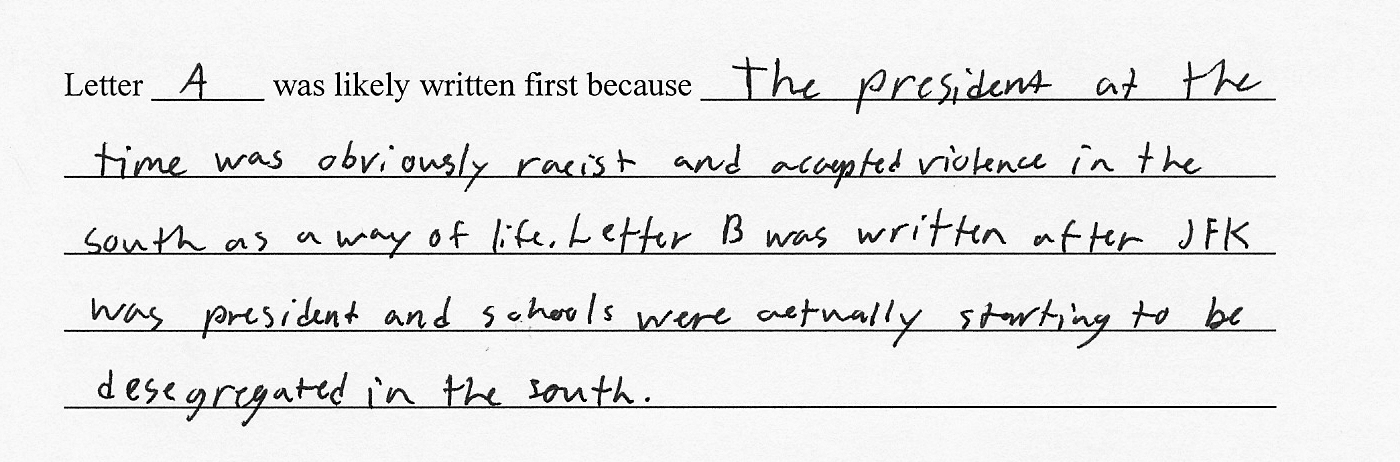 Letter A was likely written first because The president at the
time was obviously racist and accepted violence in the
south as a way of life. Letter B was written after JFK
was president and schools were actually starting to be
desegregated in the south.